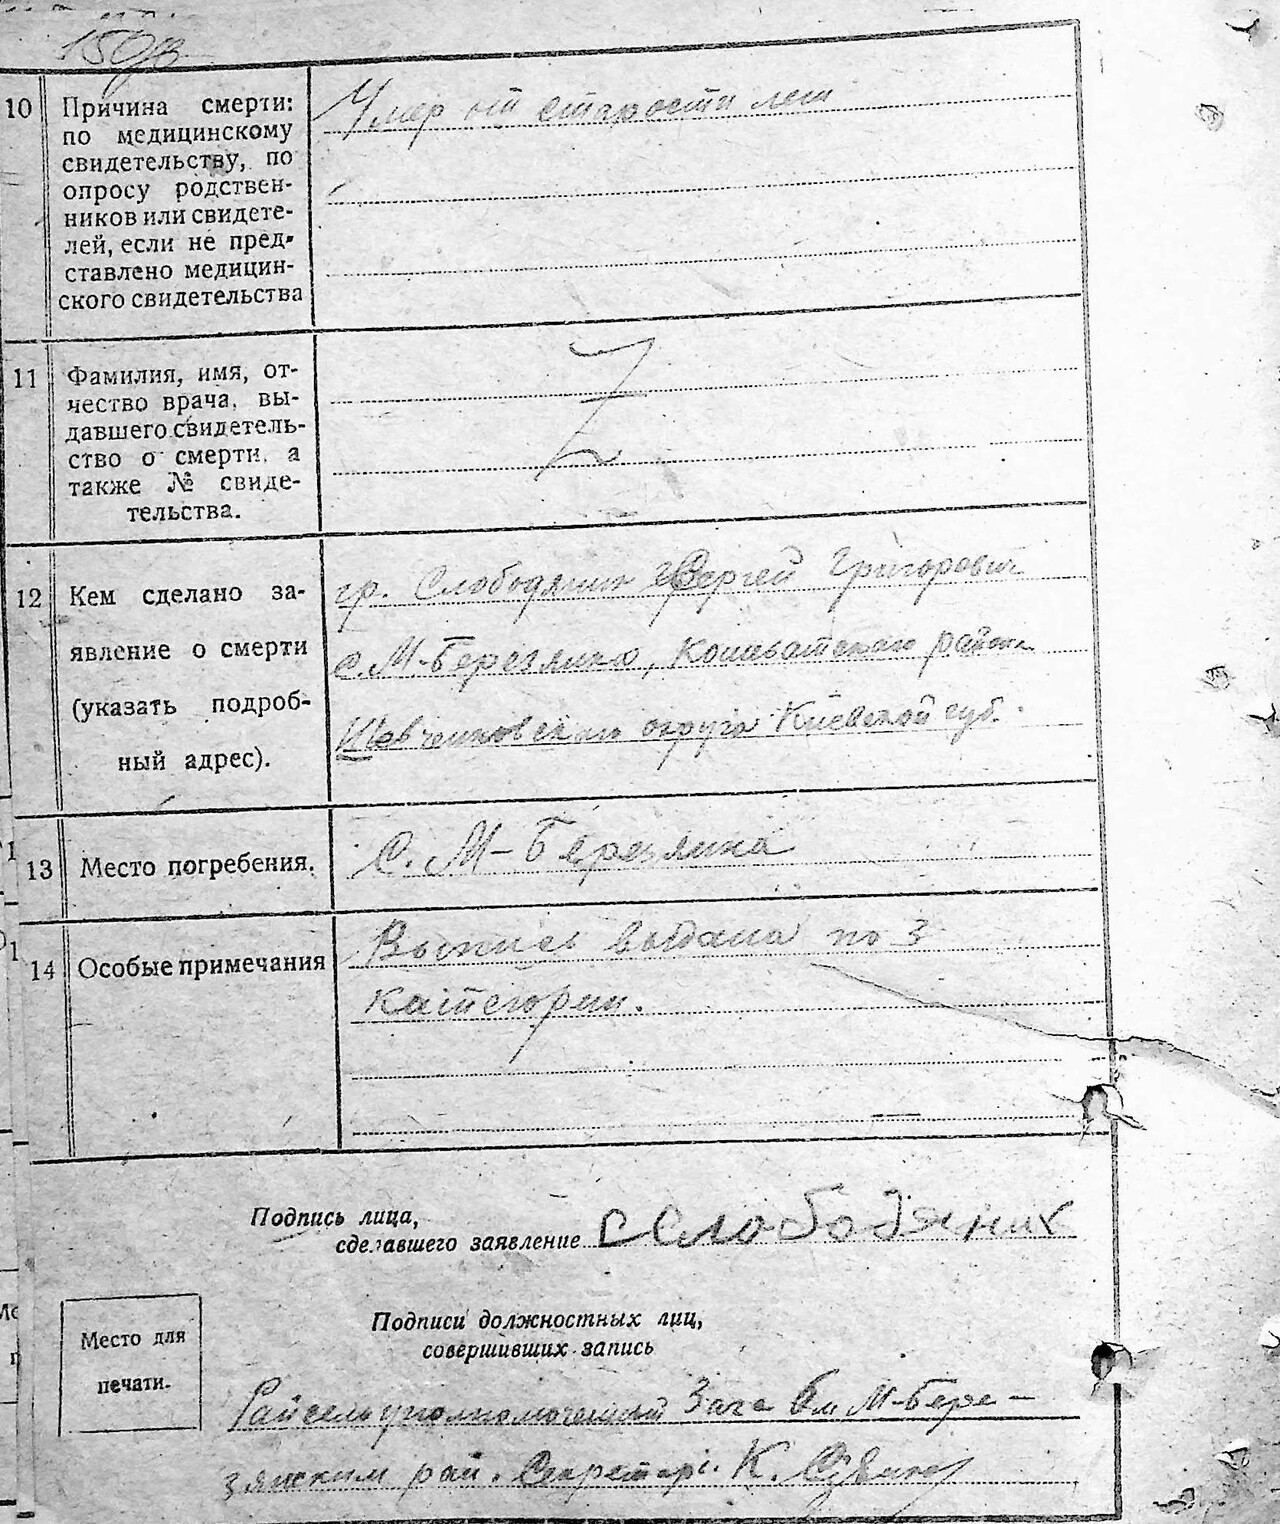 10 Причина смерти:
по медицинскому
свидетельству, по
опросу родствен-
ников или свидете-
лей, если не пред-
ставлено медицин-
ского свидетельства
Умер от старости лет
11 Фамилия, имя, от-
чество врача, вы-
давшего свидетель-
ство о смерти, а
также № свиде-
тельства.
Z
12 Кем сделано за-
явление о смерти
(указать подроб-
ный адрес).
гр. Слободяник Сергей Григорович
с. М-Березянко, Кошеватского района
Шевченковского округа Киевской губ.
13 Место погребения.
С. М-Березянка
14 Особые примечания
Выпись выдана по 3
категории.
Подпись лица,
сделавшего заявление ССлободяник
Место для
печати.
Подписи должностных лиц,
совершивших запись
Райсельуполномоченный Загса М-Бере-
зянским рай. Секретарь. К.